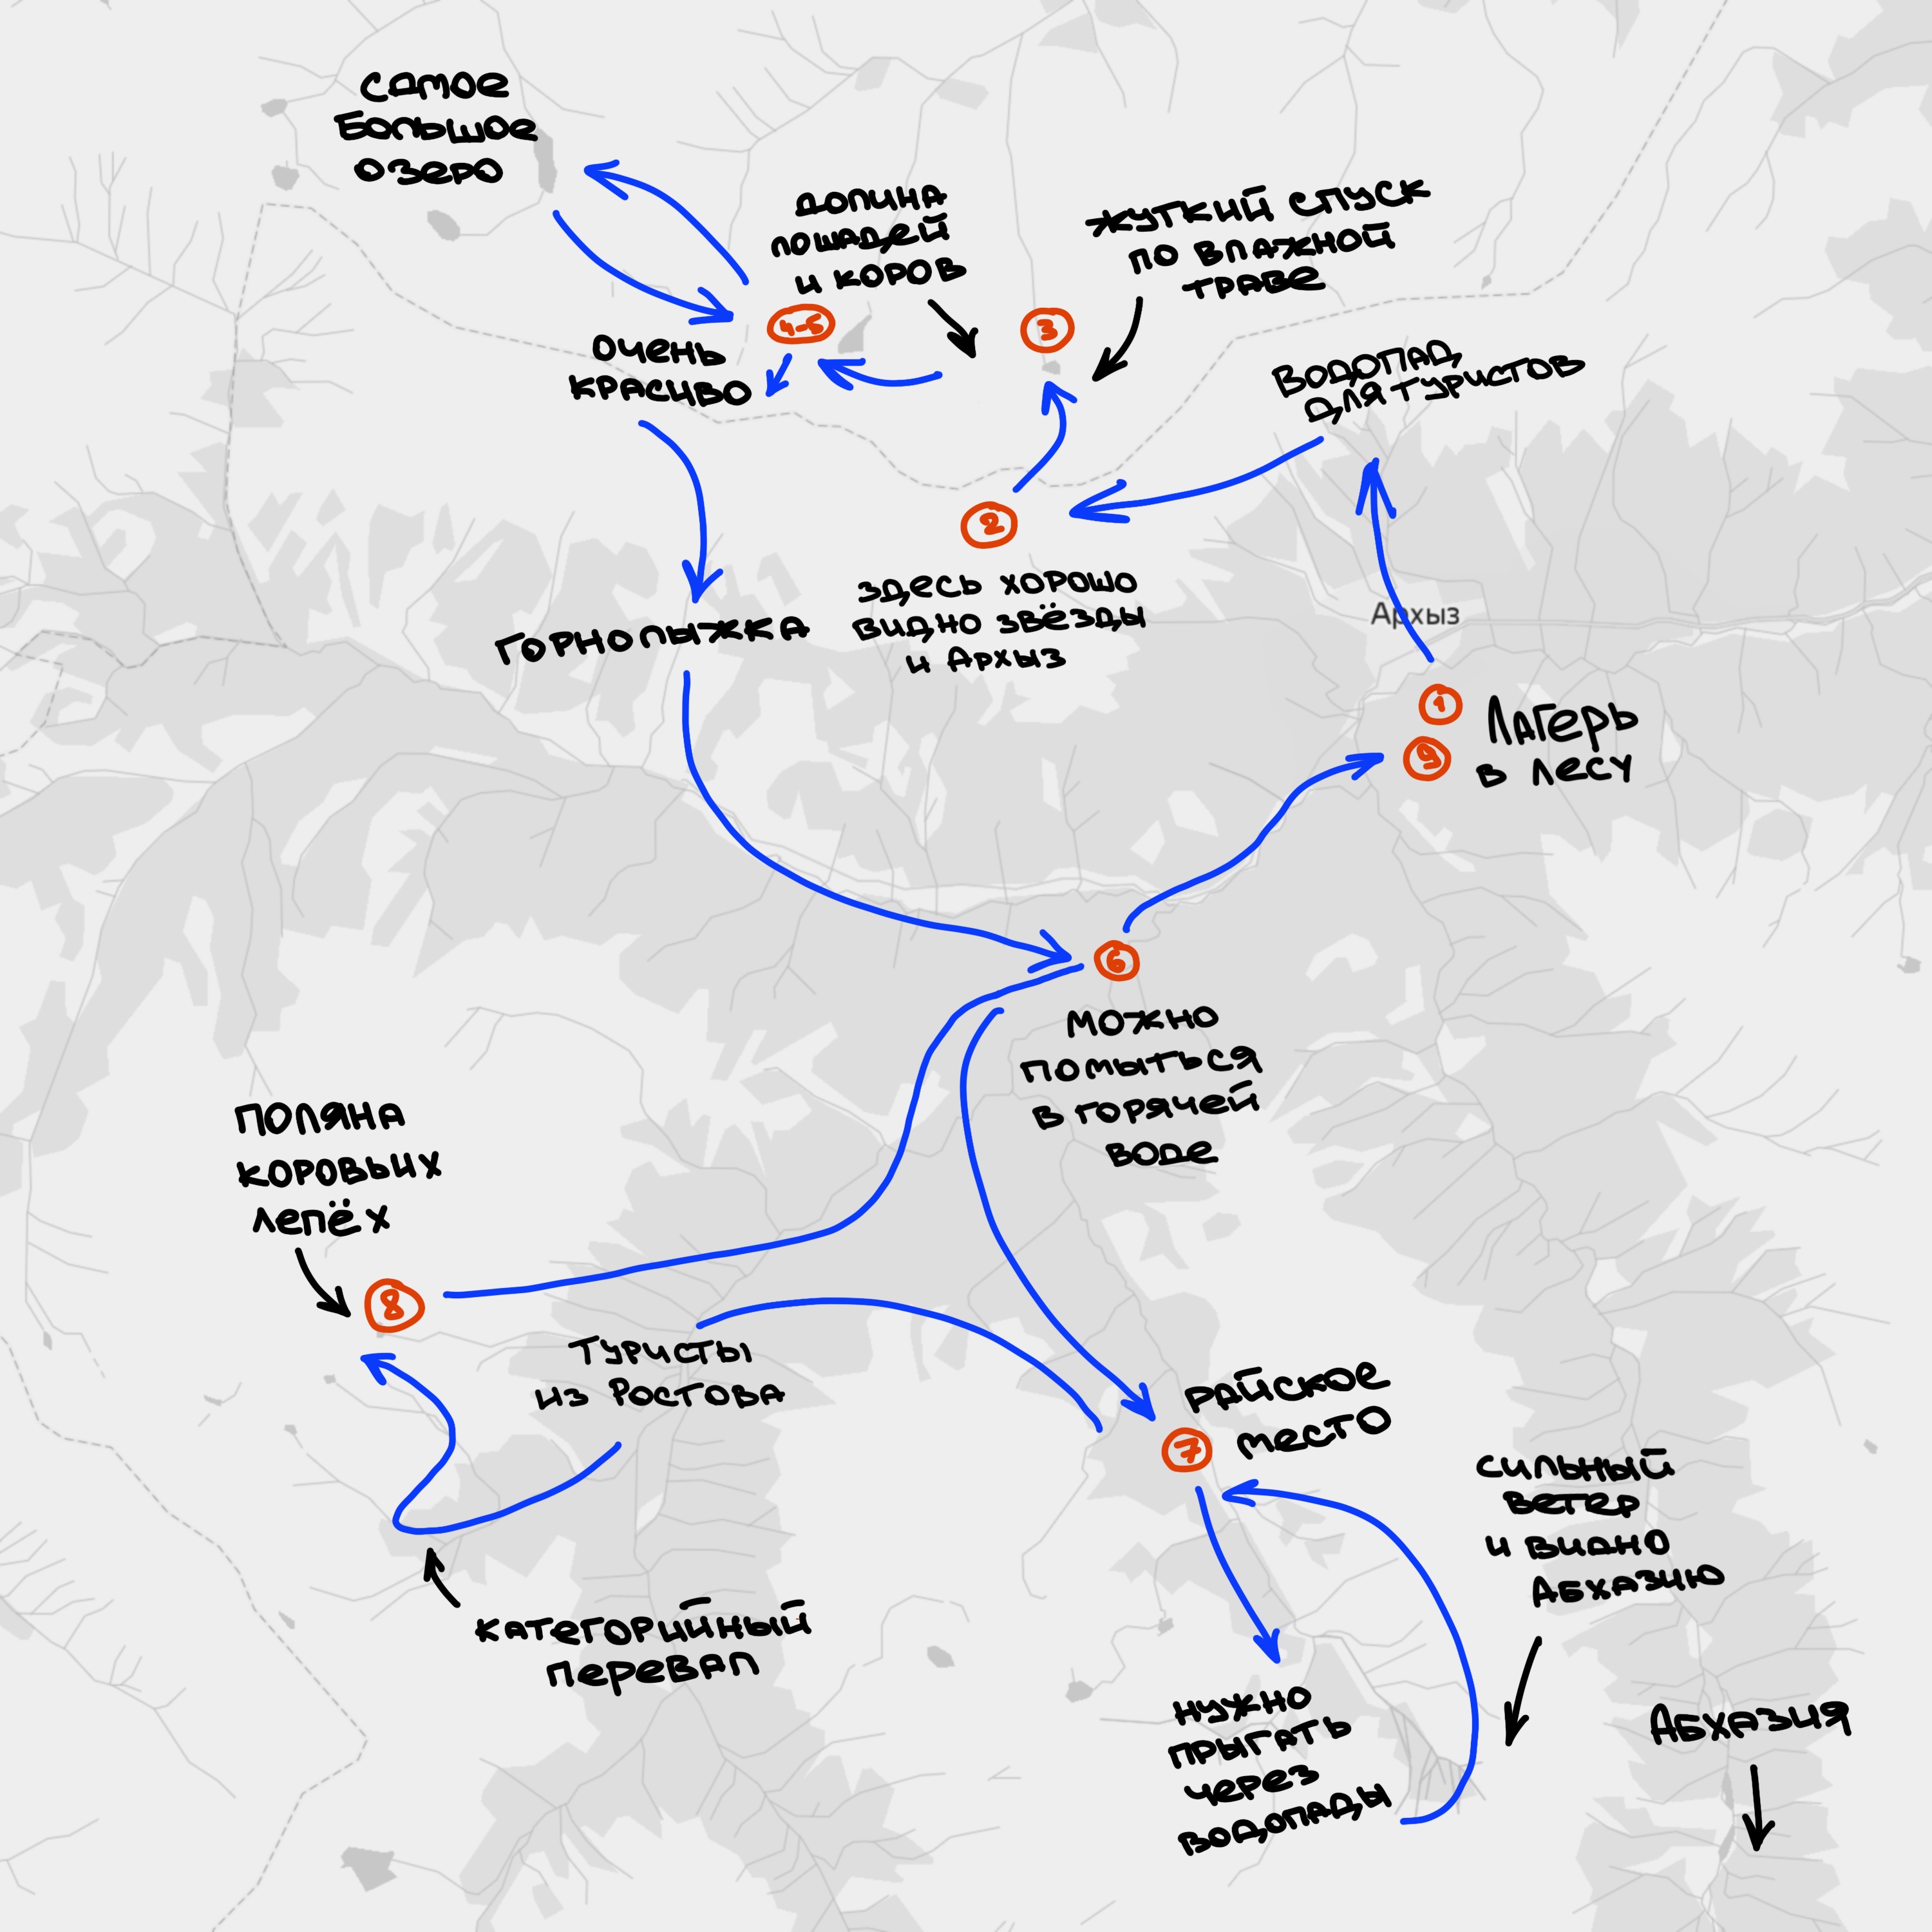 Самое
большое
озеро
долина
лошадей
и коров
жуткий спуск
по влажной
траве
4-5
3
очень
красиво
водопад
для туристов
2
здесь хорошо
видно звёзды
и Архыз
горнолыжка
Архыз
1
9
Лагерь
в лесу
6
можно
помыться
в горячей
воде
поляна
коровьих
лепёх
8
Туристы
из Ростова
райское
место
7
сильный
ветер
и видно
Абхазию
категорийный
перевал
нужно
прыгать
через
водопады
Абхазия